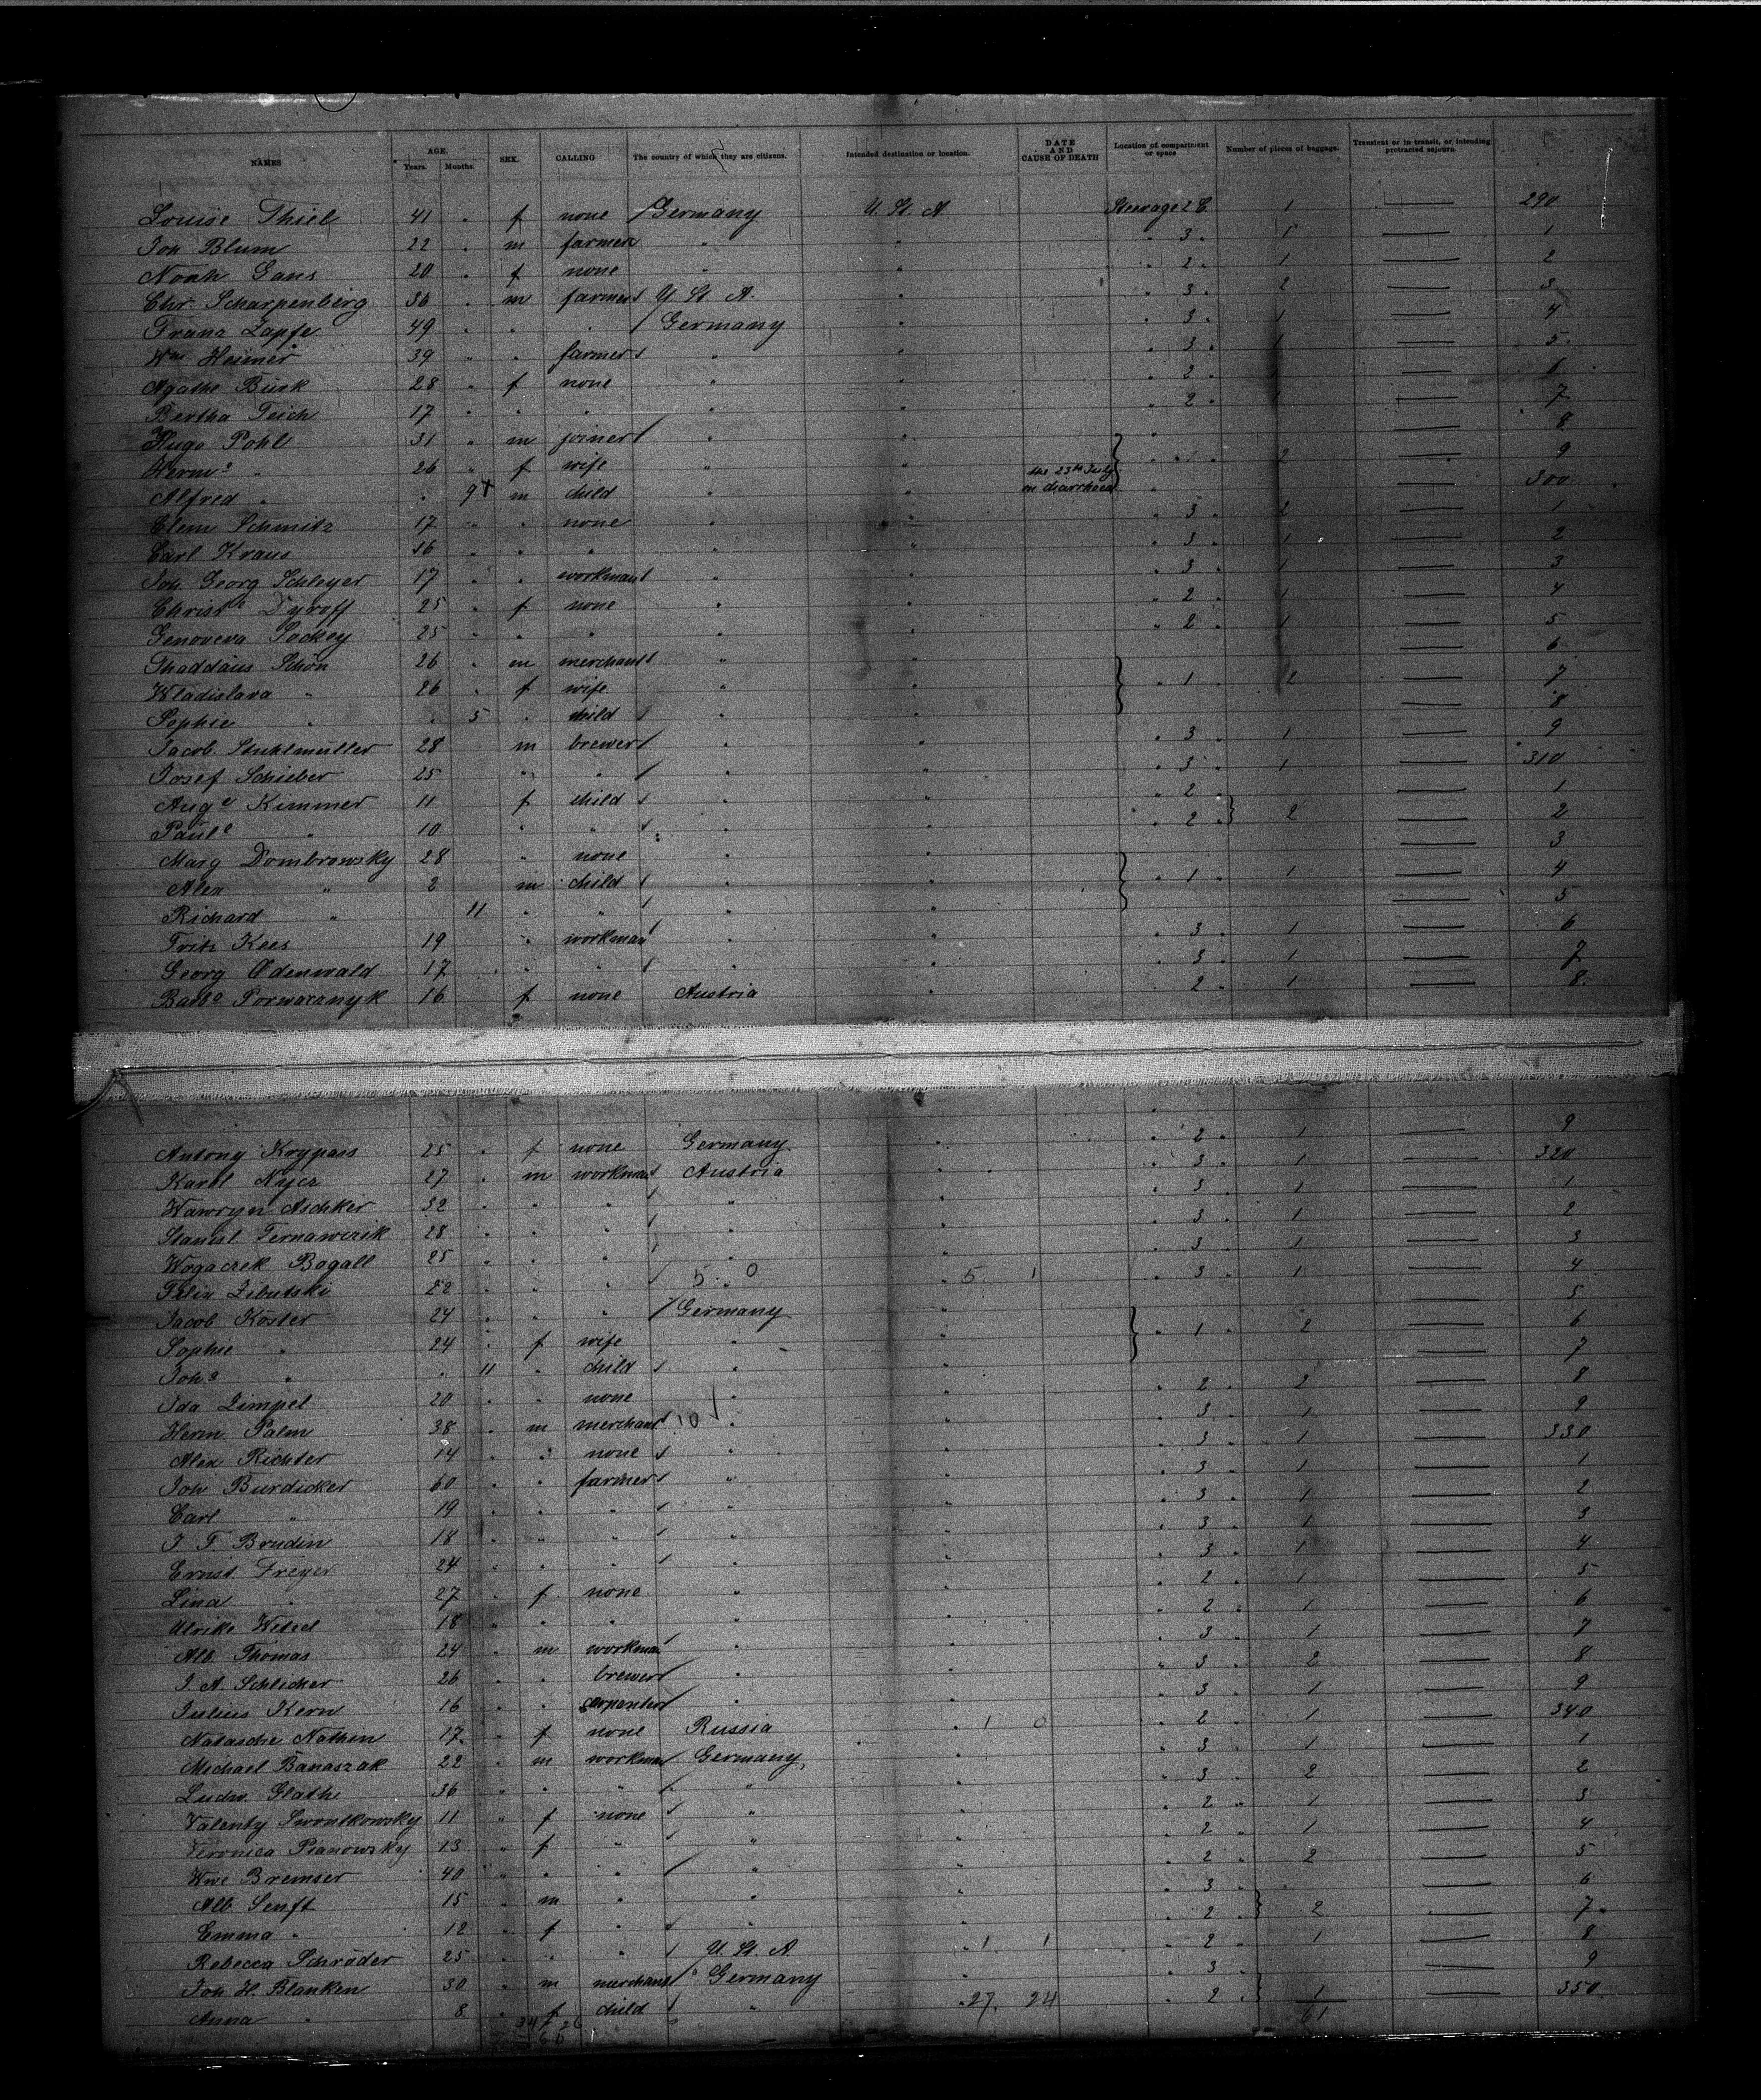 NAMES AGE. Years. Months. SEX. CALLING The country of which they are citizens. Intended destination or location. DATE AND CAUSE OF DEATH Location of compartment or space Number of pieces of baggage. Transient or in transit, or intending protracted sojourn.
Louise Thiel 41 " f none Germany U. St. A. Steerage 2 C. 1 — 290
Joh Blum 22 " m farmer " " " 3 " 1 — 1
Noah Gans 20 " f none " " " 2 " 1 — 2
Chr. Scharpenberg 36 " m farmer U St. A. " " 3 " 2 — 3
Franz Zapfe 49 " " " Germany " " 3 " 1 — 4
Wm Heimer 39 " " farmer " " " 3 " 1 — 5
Agathe Burk 28 " f none " " " 2 " — 6
Bertha Teich 17 " " " " " " 2 " 1 — 7
Hugo Pohl 31 " m joiner " " — 8
Herme " 26 " f wife " " " 1 " 2 — 9
Alfred " " 9 + m child " " the 23th July on diarrhoea — 300
Clem Schmitz 17 " " none " " " 3 " 2 — 1
Carl Kraus 16 " " " " " " 3 " 1 — 2
Joh. Georg Schleyer 17 " " workman " " " 3 " 1 — 3
Christe Dyroff 25 " f none " " " 2 " 1 — 4
Genoveva Sockey 25 " " " " " " 2 " 1 — 5
Thaddäus Schön 26 " m merchant " " — 6
Wladislava " 26 " f wife " " " 1 " 2 — 7
Sophie " " 5 " child " " — 8
Jacob Stuhlmüller 28 m brewer " " " 3 " 1 — 9
Josef Schieber 25 " " " " " 3 " 1 — 310
Auge Kimmer 11 f child " " " 2 " — 1
Paule " 10 " " " " " 2 " } 2 — 2
Marg Dombrowsky 28 " none " " — 3
Alex " 2 m child " " " 1 " 1 — 4
Richard " 11 " " " " — 5
Fritz Kees 19 " workman " " " 3 " 1 — 6
Georg Odenwald 17 " " " " " " 3 " 1 — 7
Barba Porwaranyk 16 f none Austria " 2 " 1 — 8
Antony Krypais 25 " f none Germany " " 2 " 1 — 9
Karol Nycz 27 " m workman Austria " " 3 " 1 — 320
Wawryn Aschker 32 " " " " " " 3 " 1 — 1
Stanisl. Ternawczik 28 " " " " " " 3 " 1 — 2
Wogaczek Bogall 25 " " " " " " 3 " 1 — 3
Felix Zibutski 22 " " " 5 " 0 " 5 1 " 3 " 1 — 4
Jacob Köster 24 " " " Germany " — 5
Sophie " 24 " f wife " " " 1 " 2 — 6
Joha " " 11 " child " " — 7
Ida Zimpel 20 " " none " " " 2 " 2 — 8
Herm Palm 38 " m merchant 10 " " " 3 " 1 — 9
Alex Richter 14 " " none " " " 3 " 1 — 330
Joh Burdicker 60 " " farmer " " " 3 " 1 — 1
Carl " 19 " " " " " " 3 " 1 — 2
J. F. Brudin 18 " " " " " " 3 " 1 — 3
Ernst Freyer 24 " " " " " " 3 " 1 — 4
Lina " 27 " f none " " " 2 " 1 — 5
Ulrike 18 " " " " " " 2 " 1 — 6
Alb. Thomas 24 " m workman " " " 3 " 1 — 7
J. A. Schlicker 26 " " brewer " " " 3 " 2 — 8
Julius Kern 16 " " carpenter " " " 3 " 1 — 9
Natasche Nathin 17 " f none Russia " 1 0 " 2 " 1 — 340
Michael Banaszak 22 " m workman Germany, " " 3 " 1 — 1
Ludw. Glath 36 " " " " " " 3 " 2 — 2
Valenty Swontkowsky 11 " f none " " " 2 " 1 — 3
Veronica Pianowsky 13 " f " " " " 2 " 1 — 4
Wwe Bremser 40 " " " " " " 2 " 2 — 5
Alb Senft 15 " m " " " " 3 " — 6
Emma " 12 " f " " " " 2 " } 2 — 7
Rebecca Schröder 25 " " " U. St. A. " 1 1 " 2 " 1 — 8
Joh H. Blanken 30 " m merchant Germany " " 3 " — 9
Anna " 8 " f child " " 27 24 " 2 " } 1 — 350
34 26 61